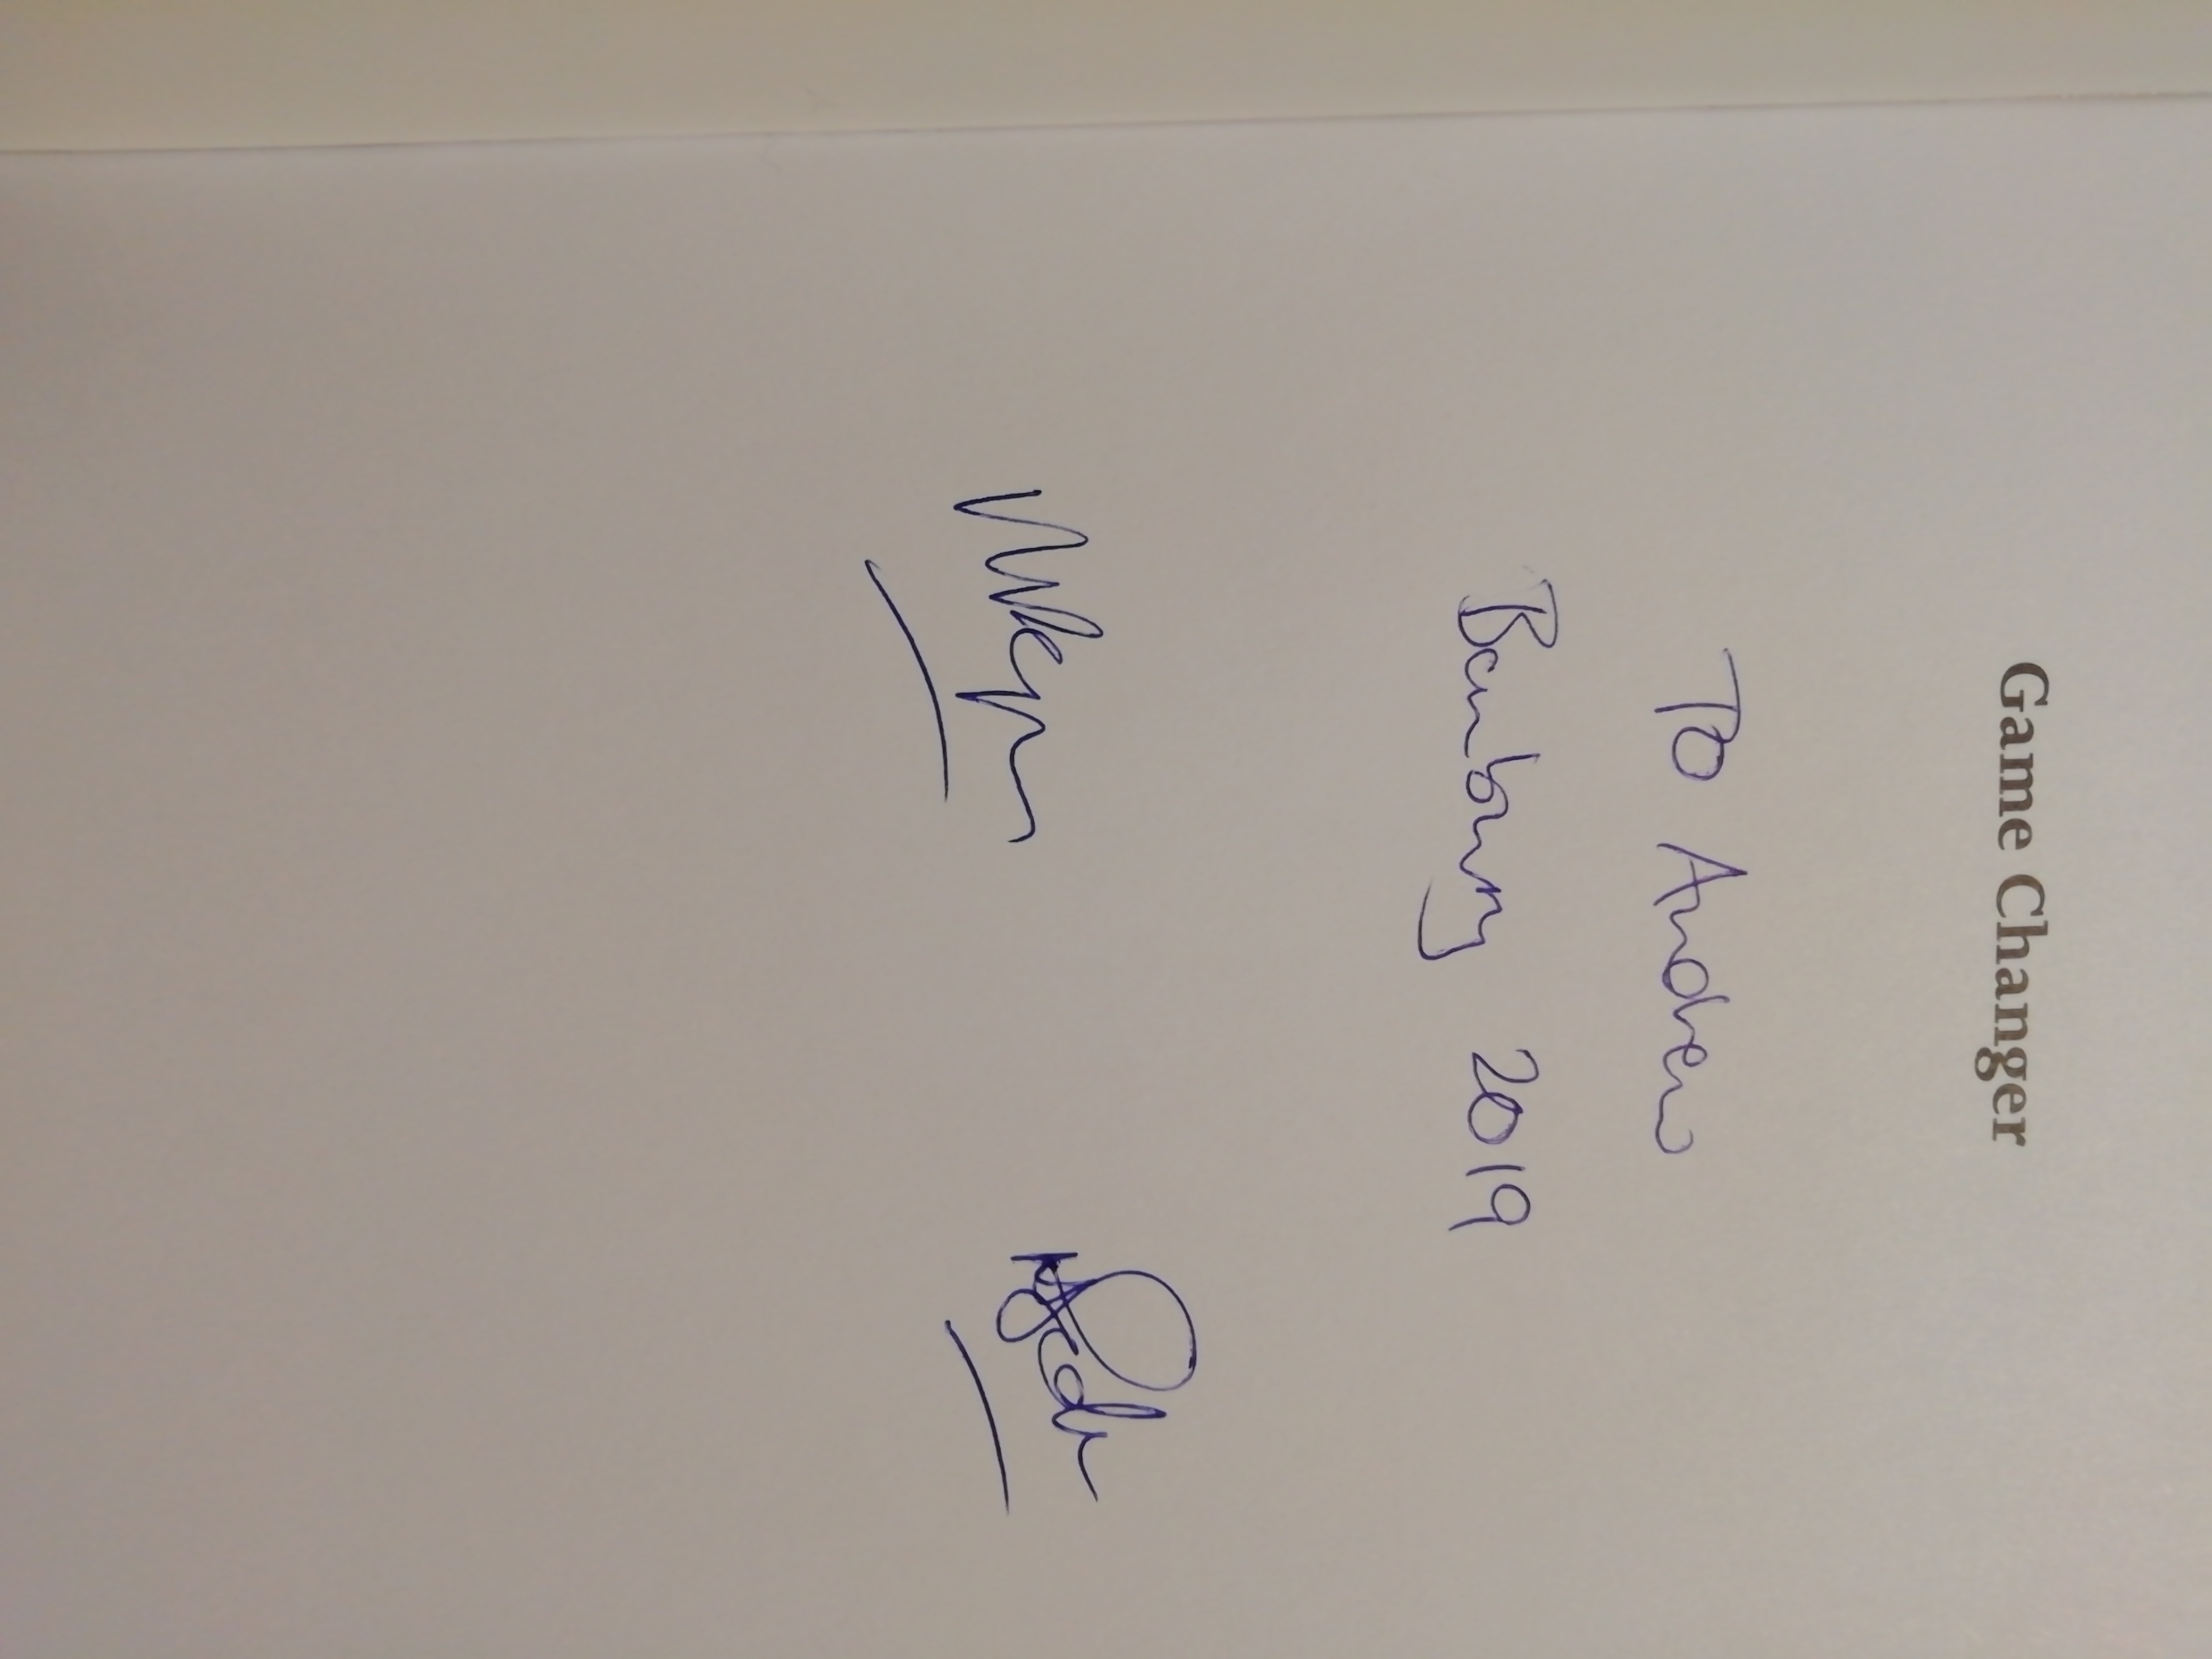 Game Changer
To Andrew
Banbury 2019